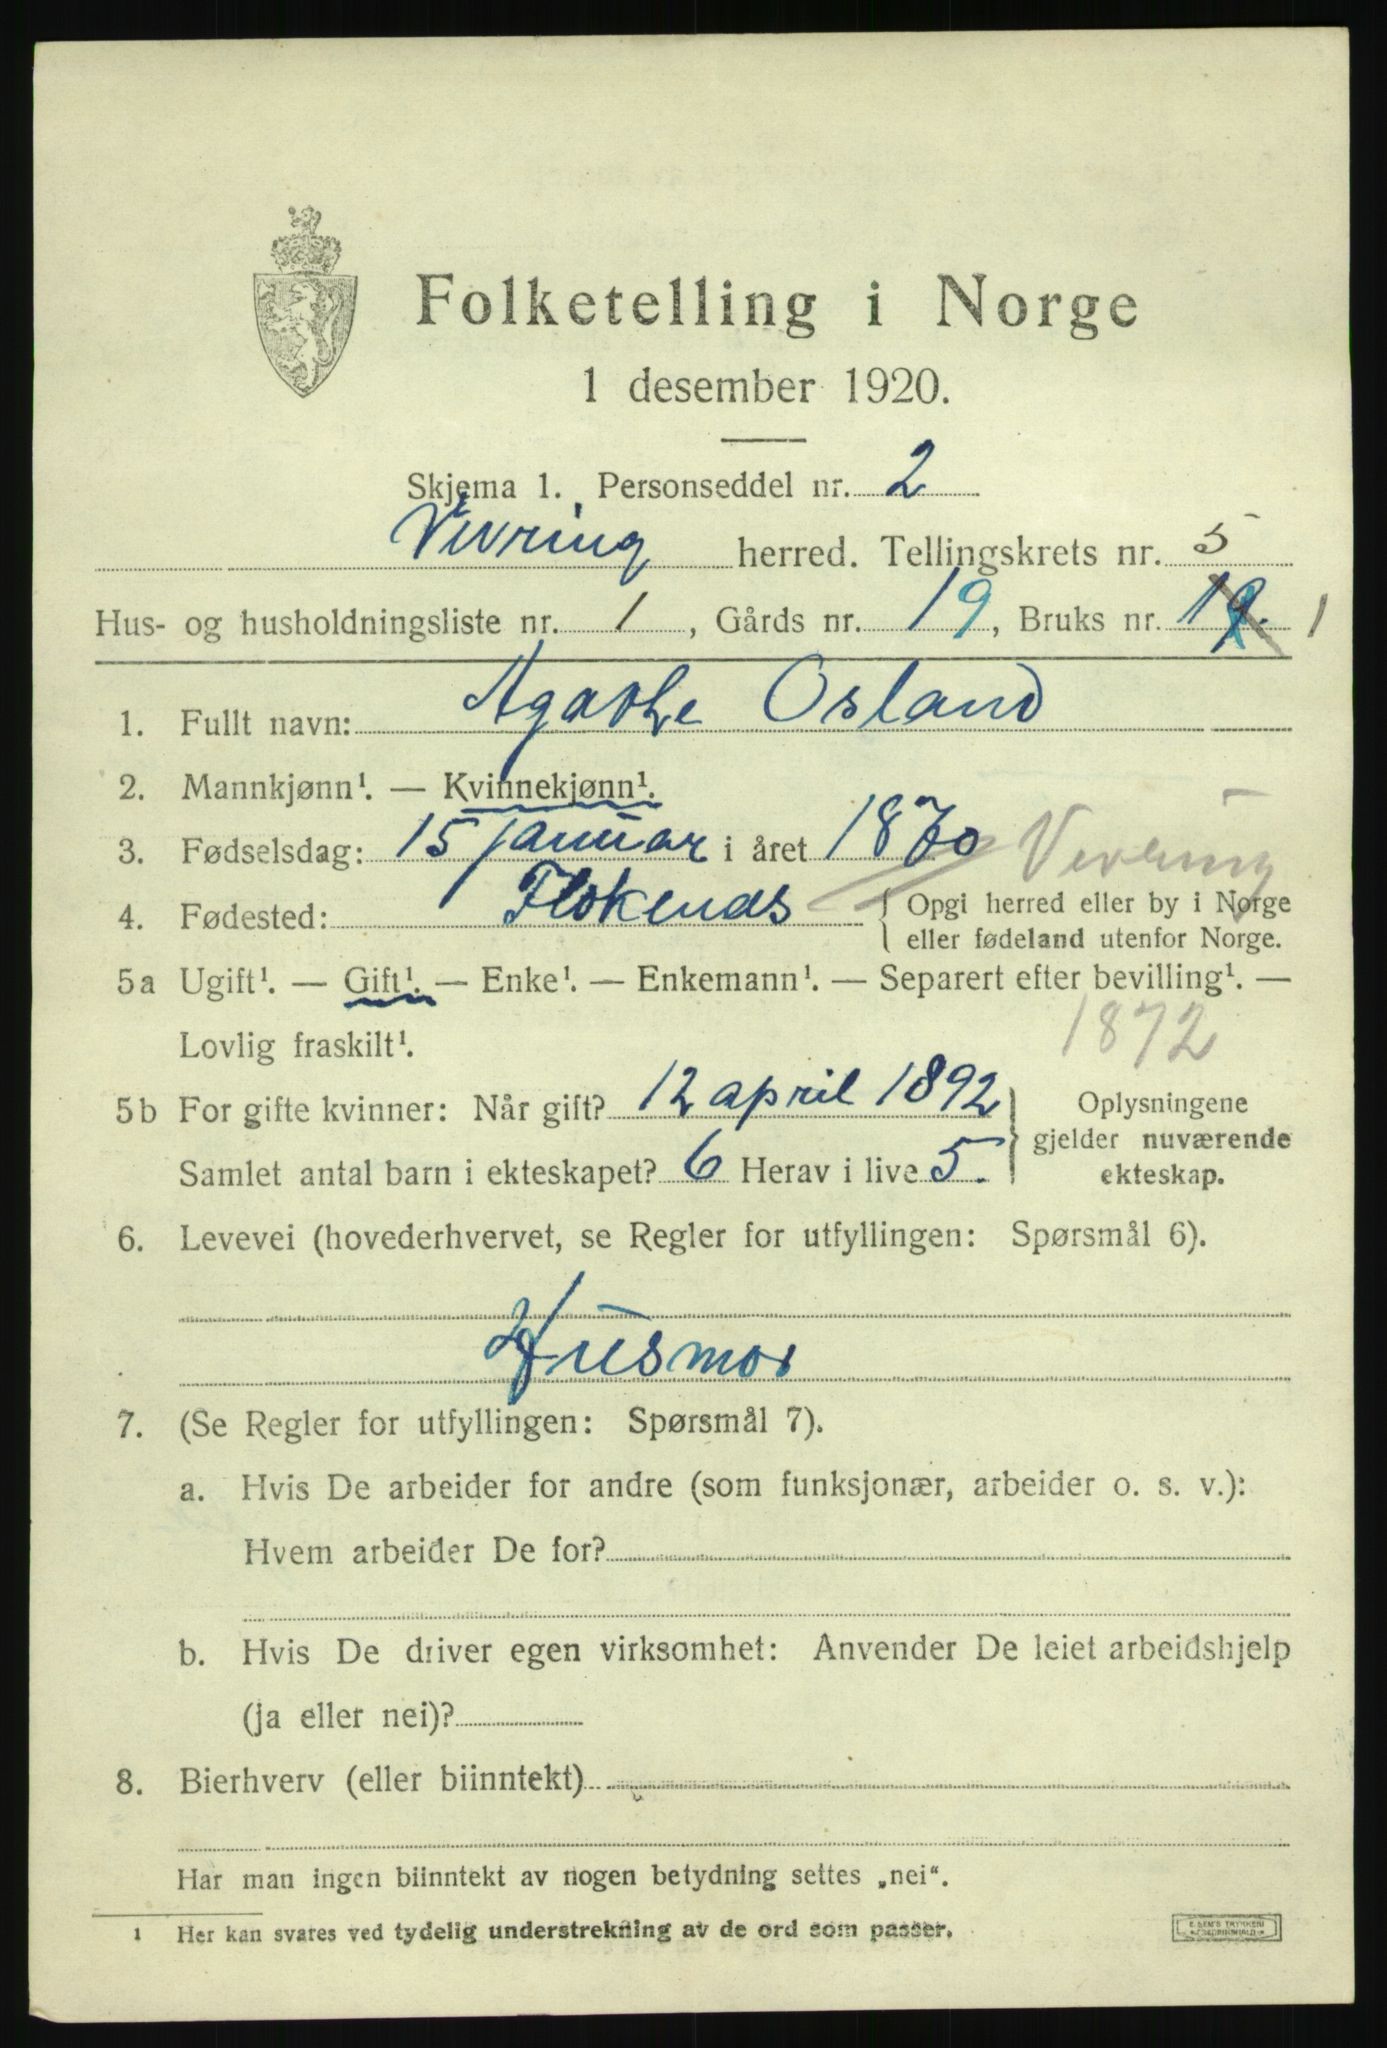 Folketelling i Norge
1 desember 1920.
Skjema 1. Personseddel nr. 2
Vevring herred. Tellingskrets nr. 5
Hus- og husholdningsliste nr. 1, Gårds nr. 19, Bruks nr. 19. 1
1. Fullt navn: Agathe Osland
2. Mannkjønn¹. — Kvinnekjønn¹.
3. Fødselsdag: 15 januar i året 1870 Vevring
4. Fødested: Flokenæs { Opgi herred eller by i Norge
eller fødeland utenfor Norge.
5a Ugift¹. — Gift¹. — Enke¹. — Enkemann¹. — Separert efter bevilling¹. —
Lovlig fraskilt¹. 1872
5b For gifte kvinner: Når gift? 12 april 1892 } Oplysningene
gjelder nuværende
Samlet antal barn i ekteskapet? 6 Herav i live 5. ekteskap.
6. Levevei (hovederhvervet, se Regler for utfyllingen: Spørsmål 6).
Husmor
7. (Se Regler for utfyllingen: Spørsmål 7).
a. Hvis De arbeider for andre (som funksjonær, arbeider o. s. v.):
Hvem arbeider De for?
b. Hvis De driver egen virksomhet: Anvender De leiet arbeidshjelp
(ja eller nei)?
8. Bierhverv (eller biinntekt)
Har man ingen biinntekt av nogen betydning settes „nei“.
¹ Her kan svares ved tydelig understrekning av de ord som passer.